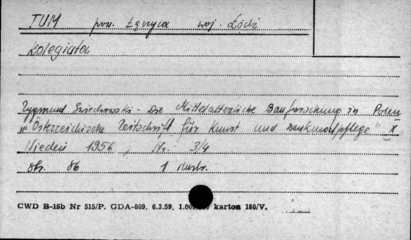 TUM pow. Łęczyca woj. Łódź
Kolegiata
Zygmund Świechowski - Die Mittelalterliche Bauforschung in Polen
w "Österreichische Zeitschrift für Kunst und Denkmalpflege" X
Wiedeń 1956, Nr. 3/4
str. 86 1 ilustr.
CWD B-15b Nr 515/P. GDA-809. 6.3.59. karton 180/V.